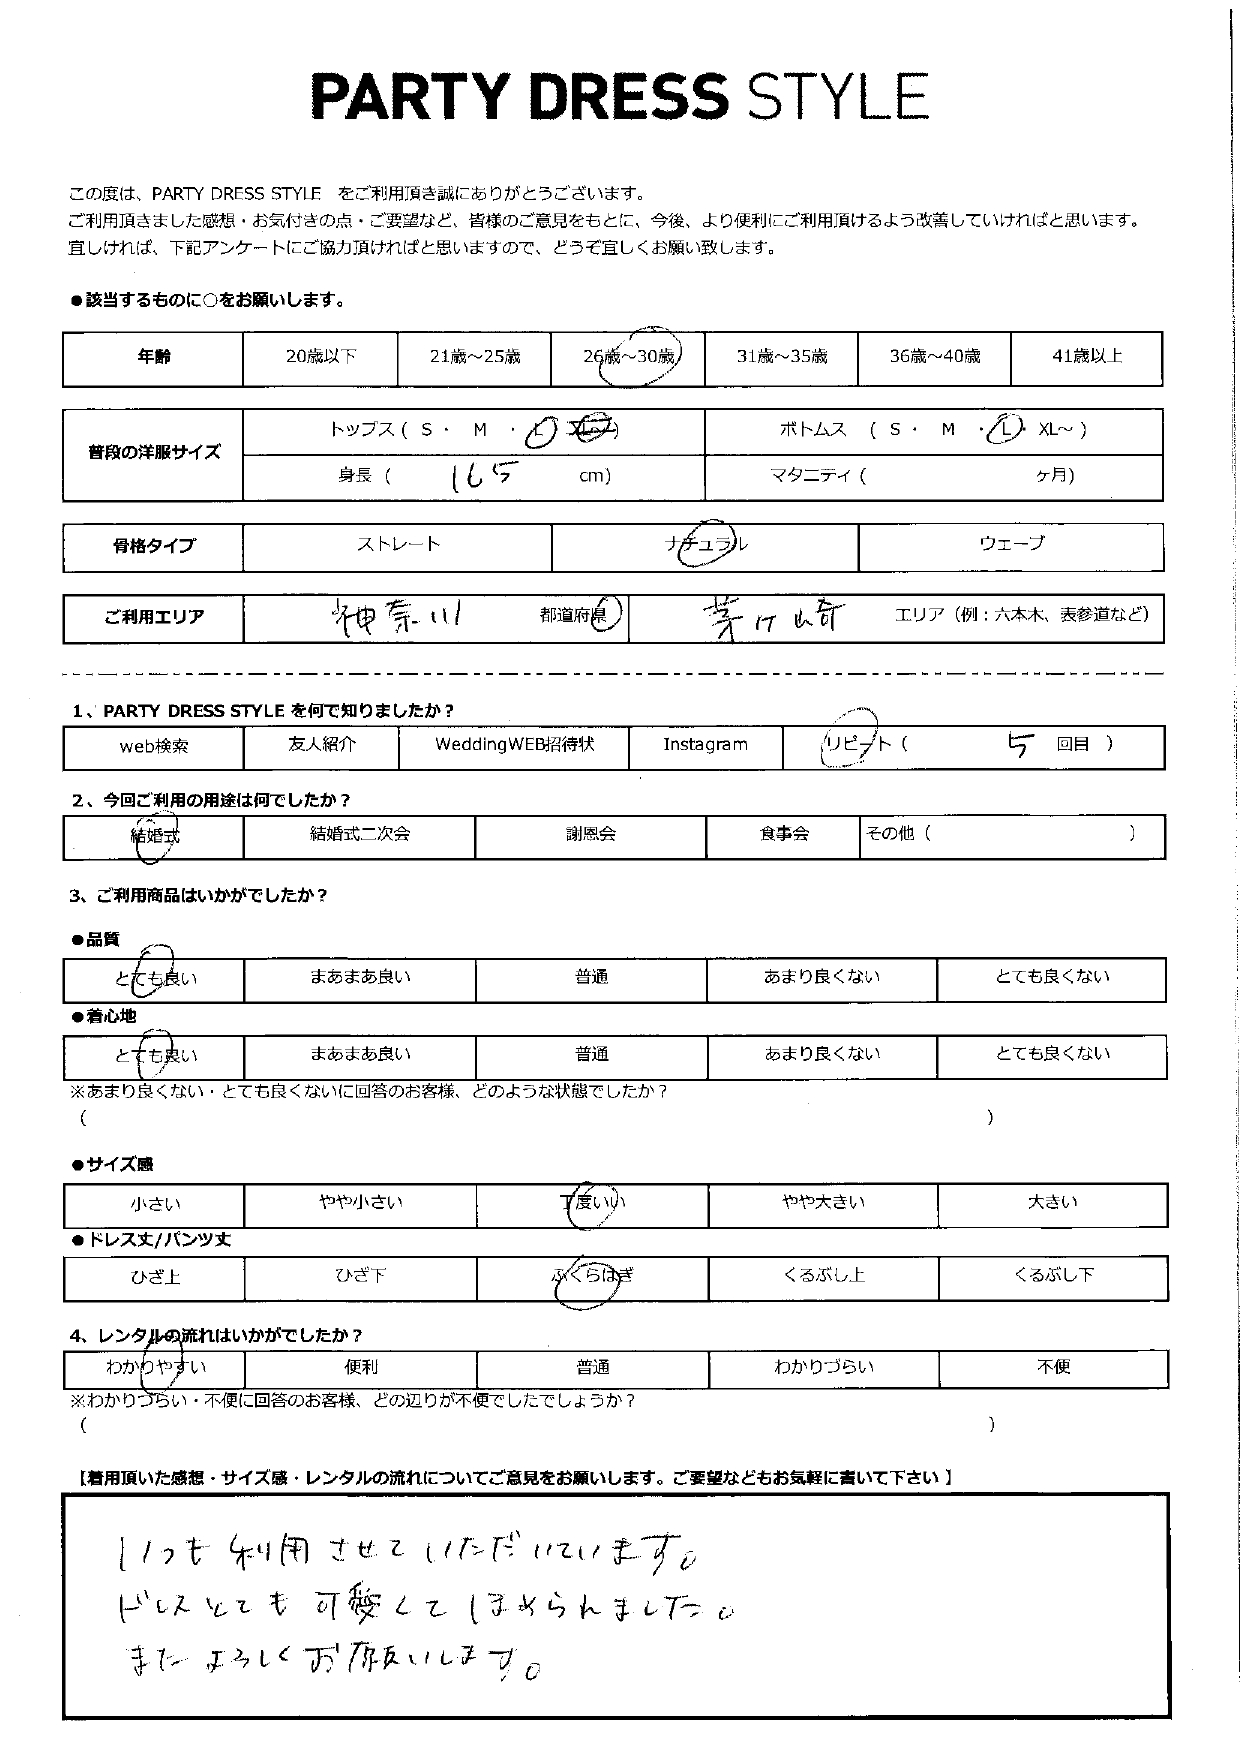 PARTY DRESS STYLE
この度は、PARTY DRESS STYLE をご利用頂き誠にありがとうございます。
ご利用頂きました感想・お気付きの点・ご要望など、皆様のご意見をもとに、今後、より便利にご利用頂けるよう改善していければと思います。
宜しければ、下記アンケートにご協力頂ければと思いますので、どうぞ宜しくお願い致します。
●該当するものに○をお願いします。
年齢 20歳以下 21歳～25歳 26歳～30歳 31歳～35歳 36歳～40歳 41歳以上
普段の洋服サイズ
トップス ( S ・ M ・ L ・ XL～ ) ボトムス ( S ・ M ・ L ・ XL～ )
身長 ( 165 cm) マタニティ ( ヶ月)
骨格タイプ ストレート ナチュラル ウェーブ
ご利用エリア 神奈川 都道府県 茅ケ崎 エリア（例：六本木、表参道など）
1、PARTY DRESS STYLE を何で知りましたか？
web検索 友人紹介 WeddingWEB招待状 Instagram リピート ( 5 回目 )
2、今回ご利用の用途は何でしたか？
結婚式 結婚式二次会 謝恩会 食事会 その他 ( )
3、ご利用商品はいかがでしたか？
●品質
とても良い まあまあ良い 普通 あまり良くない とても良くない
●着心地
とても良い まあまあ良い 普通 あまり良くない とても良くない
※あまり良くない・とても良くないに回答のお客様、どのような状態でしたか？
( )
●サイズ感
小さい やや小さい 丁度いい やや大きい 大きい
●ドレス丈/パンツ丈
ひざ上 ひざ下 ふくらはぎ くるぶし上 くるぶし下
4、レンタルの流れはいかがでしたか？
わかりやすい 便利 普通 わかりづらい 不便
※わかりづらい・不便に回答のお客様、どの辺りが不便でしたでしょうか？
( )
【着用頂いた感想・サイズ感・レンタルの流れについてご意見をお願いします。ご要望などもお気軽に書いて下さい】
いつも利用させていただいています。
ドレスとても可愛くてほめられました。
またよろしくお願いします。